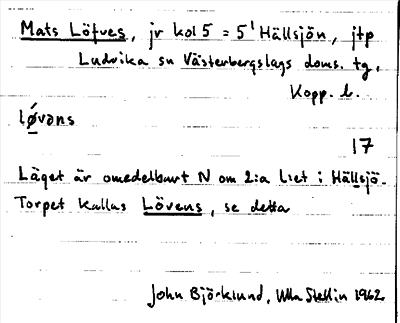 Mats Löfves, jr kol 5 = 5' Hällsjön, jtp
Ludvika sn Västerbergslags doms. tg,
Kopp. l.
løvəns
17
Läget är omedelbart N om 2:a l:et i Hällsjö-
Torpet kallas Lövens, se detta
John Björklund, Ulla Stellin 1962